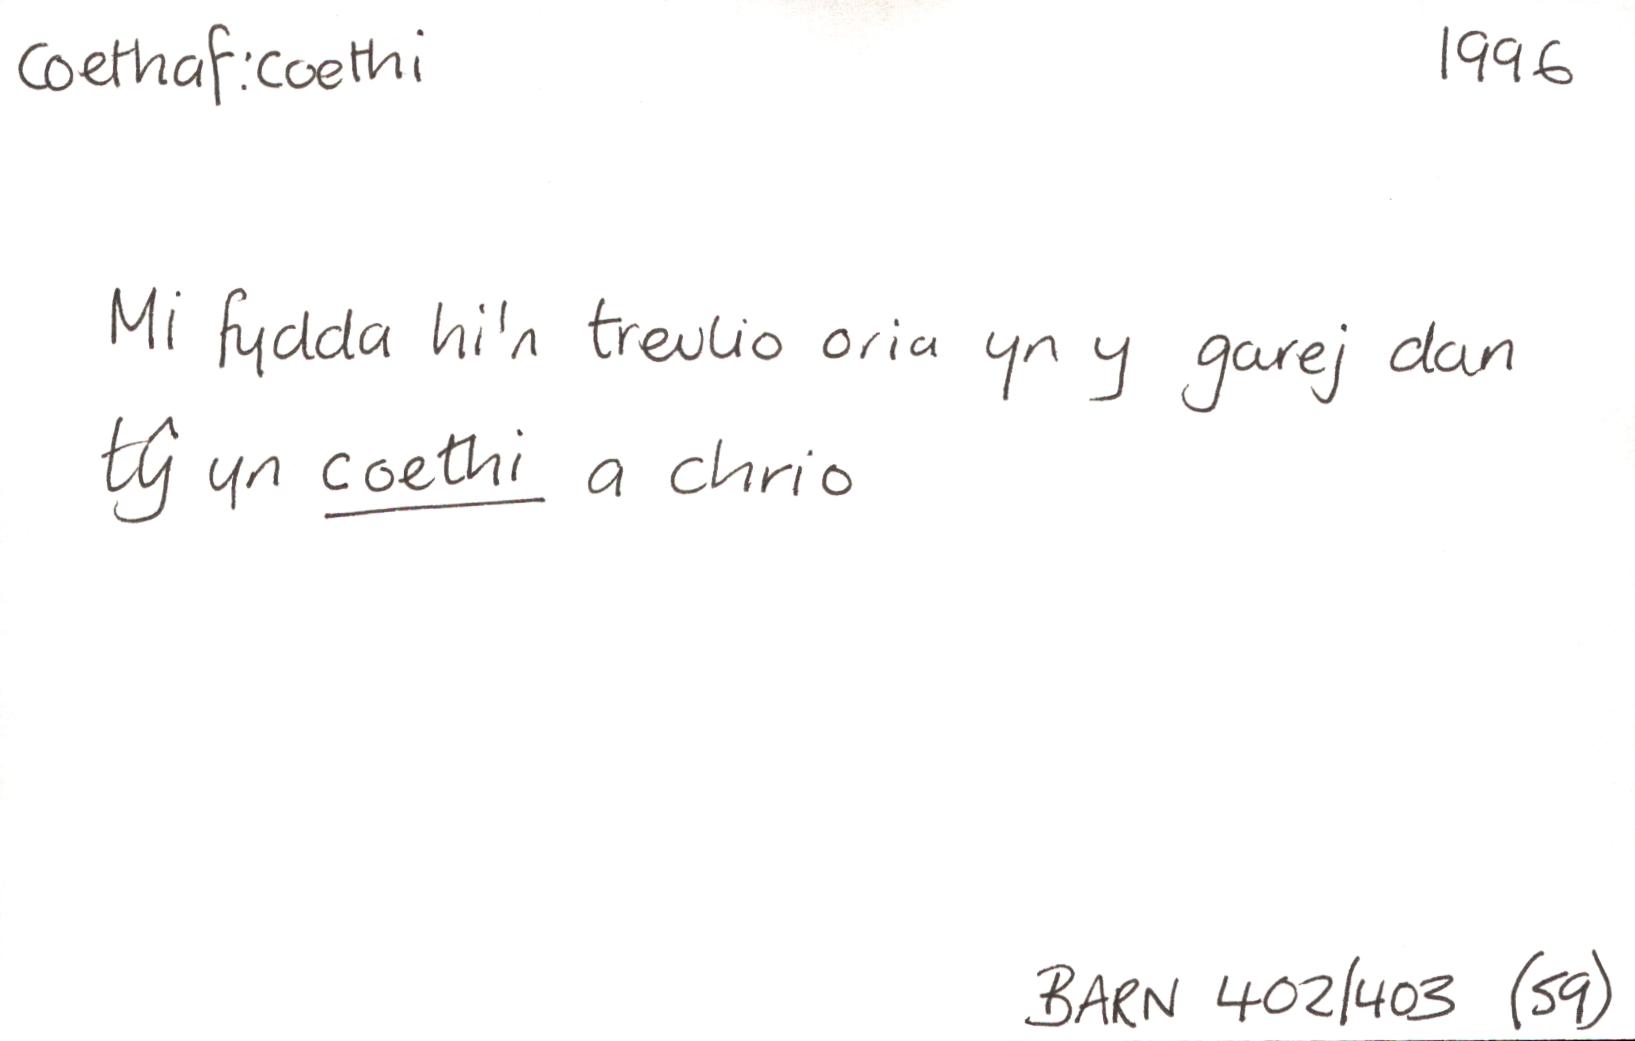 Coethaf:coethi 1996
Mi fydda hi'n treulio oria yn y garej dan
tŷ yn coethi a chrio
BARN 402/403 (59)